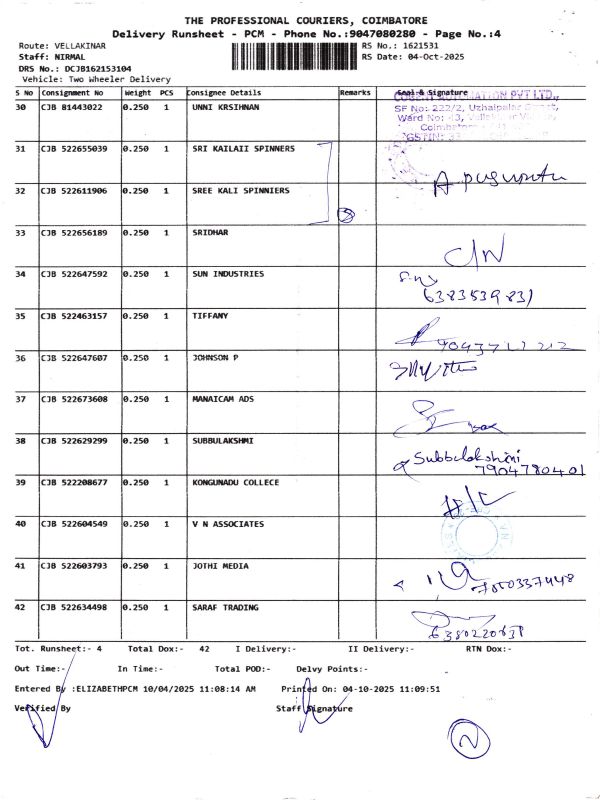 THE PROFESSIONAL COURIERS, COIMBATORE
Delivery Runsheet - PCM - Phone No.:9047080280 - Page No.:4
Route: VELLAKINAR RS No.: 1621531
Staff: NIRMAL RS Date: 04-Oct-2025
DRS No.: DCJB162153104
Vehicle: Two Wheeler Delivery
S No Consignment No Weight PCS Consignee Details Remarks Seal & Signature
30 CJB 81443022 0.250 1 UNNI KRSIHNAN
SF No: 222/2, Uzhaipalar Street,
31 CJB 522655039 0.250 1 SRI KAILAII SPINNERS
32 CJB 522611906 0.250 1 SREE KALI SPINNIERS
33 CJB 522656189 0.250 1 SRIDHAR
34 CJB 522647592 0.250 1 SUN INDUSTRIES
35 CJB 522463157 0.250 1 TIFFANY
36 CJB 522647607 0.250 1 JOHNSON P
37 CJB 522673608 0.250 1 MANAICAM ADS
38 CJB 522629299 0.250 1 SUBBULAKSHMI Subbulakshmi
7904780401
39 CJB 522208677 0.250 1 KONGUNADU COLLECE
40 CJB 522604549 0.250 1 V N ASSOCIATES
41 CJB 522603793 0.250 1 JOTHI MEDIA
42 CJB 522634498 0.250 1 SARAF TRADING
Tot. Runsheet:- 4 Total Dox:- 42 I Delivery:- II Delivery:- RTN Dox:-
Out Time:- In Time:- Total POD:- Delvy Points:-
Entered By :ELIZABETHPCM 10/04/2025 11:08:14 AM Printed On: 04-10-2025 11:09:51
Verified By Staff Signature
2